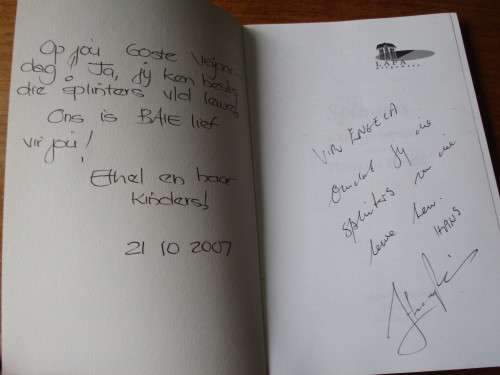 Op jou 60ste verjaar-
dag. Ja, jy ken beslis
die splinters v/d lewe!
Ons is BAIE lief
vir jou!
Ethel en haar
kinders!
21 10 2007
LAPA
VIR ENGELA
Omdat jy die
splinters van die
lewe ken.
HANS